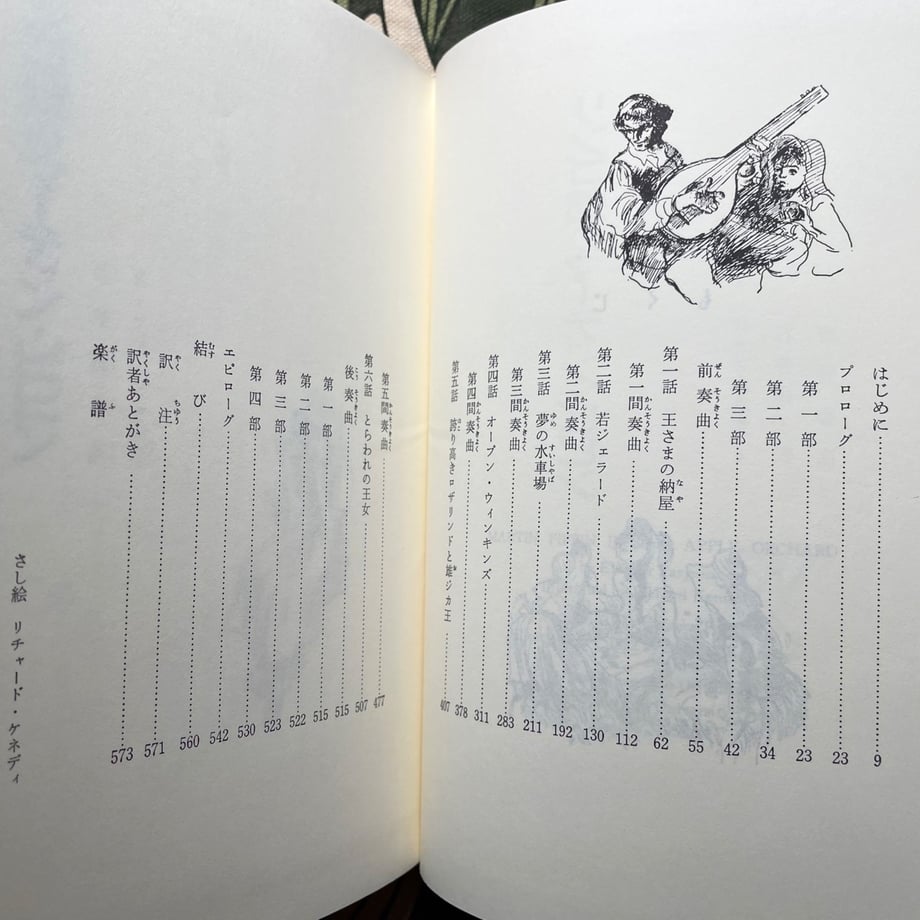 はじめに 9
プロローグ 23
第一部 23
第二部 34
第三部 42
前奏曲 55
第一話 王さまの納屋 62
第一間奏曲 112
第二話 若ジェラード 130
第二間奏曲 192
第三話 夢の水車場 211
第三間奏曲 283
第四話 オープン・ウィンキンズ 311
第四間奏曲 378
第五話 誇り高きロザリンドと雄ジカ王 407
第五間奏曲 477
第六話 とらわれの王女 507
後奏曲 515
第一部 515
第二部 522
第三部 523
第四部 530
エピローグ 542
結び 560
訳注 571
訳者あとがき 573
楽譜
さし絵 リチャード・ケネディ